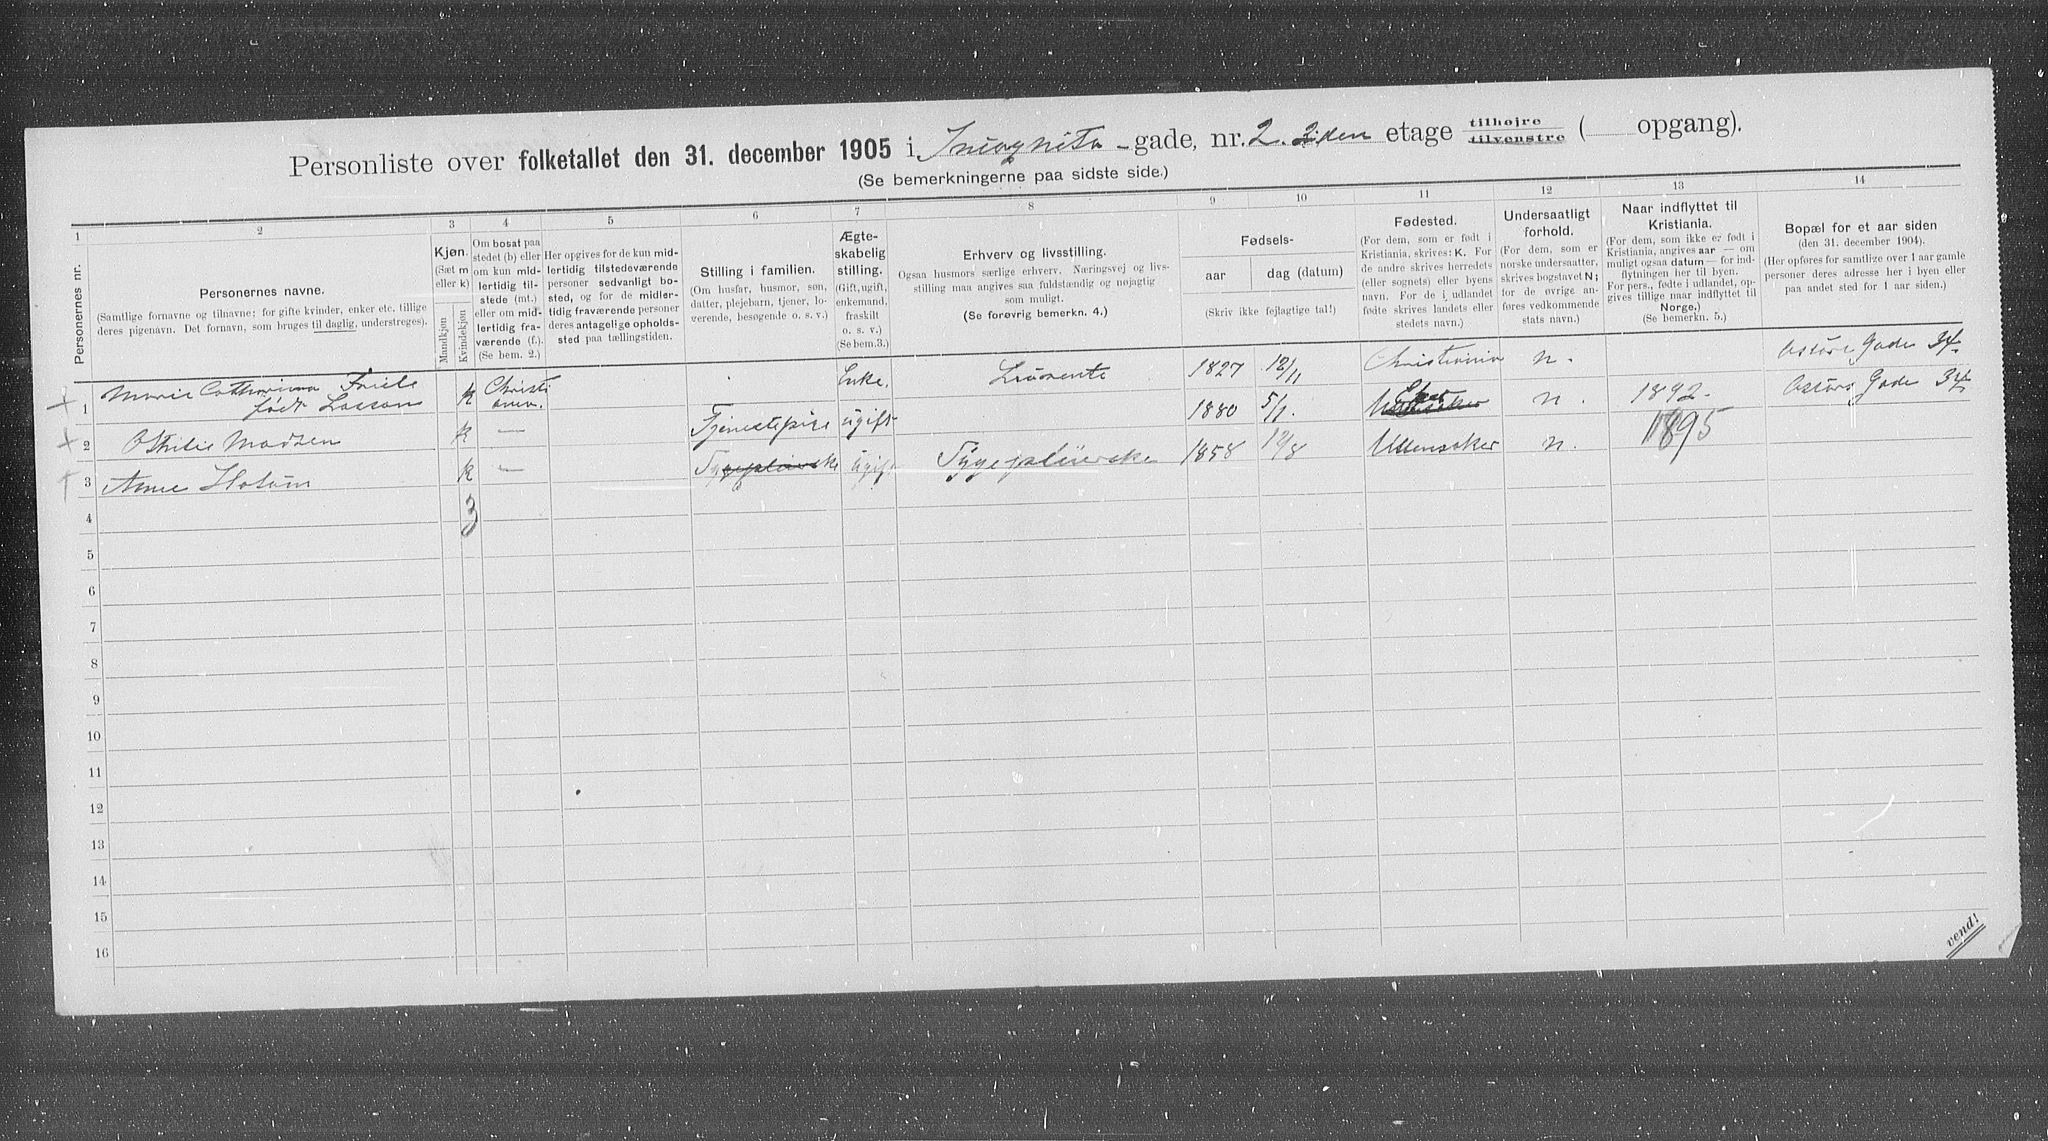 Personliste over folketallet den 31. december 1905 i Incognito-gade, nr. 2. 2den etage tilhøjre tilvenstre ( opgang).
(Se bemerkningerne paa sidste side.)
1 2 3 4 5 6 7 8 9 10 11 12 13 14
Personernes nr.
Personernes navne.
(Samtlige fornavne og tilnavne; for gifte kvinder, enker etc. tillige
deres pigenavn. Det fornavn, som bruges til daglig, understreges).
Kjøn.
(Sæt m
eller k)
Mandkjøn
Kvindekjøn
Om bosat paa
stedet (b) eller
om kun mid-
lertidig til-
stede (mt.)
eller om mid-
lertidig fra-
værende (f.).
(Se bem. 2.)
Her opgives for de kun mid-
lertidig tilstedeværende
personer sedvanlig bo-
sted, og for de midler-
tidig fraværende personer
deres antagelige opholds-
sted paa tællingstiden.
Stilling i familien.
(Om husfar, husmor, søn,
datter, plejebarn, tjener, lo-
gerende, besøgende o. s. v.)
Ægte-
skabelig
stilling.
(Gift, ugift,
enkemand,
fraskilt
o. s. v.)
(Se bem. 3.)
Erhverv og livsstilling.
Ogsaa husmors særlige erhverv. Næringsvej og livs-
stilling maa angives saa fuldstændig og nøjagtig
som muligt.
(Se forøvrig bemerkn. 4.)
Fødsels-
aar
dag (datum)
(Skriv ikke fejlagtige tal!)
Fødested.
(For dem, som er født i
Kristiania, skrives: K. For
de andre skrives herredets
(eller sognets) eller byens
navn. For de i udlandet
fødte skrives landets eller
stedets navn.)
Undersaatligt
forhold.
(For dem, som er
norske undersaatter,
skrives bogstavet N;
for de øvrige an-
føres vedkommende
stats navn.)
Naar indflyttet til
Kristiania.
(For dem, som ikke er født i
Kristiania, angives aar — om
muligt ogsaa datum — for ind-
flytningen her til byen.
For pers., fødte i udlandet, op-
gives tillige naar indflyttet til
Norge.)
(Se bemerkn. 5.)
Bopæl for et aar siden
(den 31. december 1904).
(Her opføres for samtlige over 1 aar gamle
personer deres adresse her i byen eller
paa andet sted for 1 aar siden.)
1 Marie Catharina Friele
født Lasson k Christiania. Enke. 1827 12/11 Christiania n.
2 Othilie Madsen k — Tjenestepige ugift 1880 5/1. Eker n. 1892.
3 Anne k — ugift Sygepleierske 1858 12/8 Ullensaker n. 1895
3
4
5
6
7
8
9
10
11
12
13
14
15
16
vend!